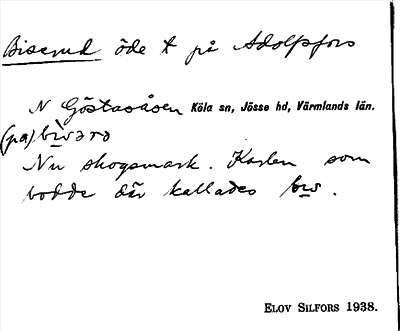 Biserud öde t på Adolfsfors
N Göstasåsen Köla sn, Jösse hd, Värmlands län.
(på) bìsərə
Nu skogsmark. Karlen som
bodde där kallades bis.
ELOV SILFORS 1938.